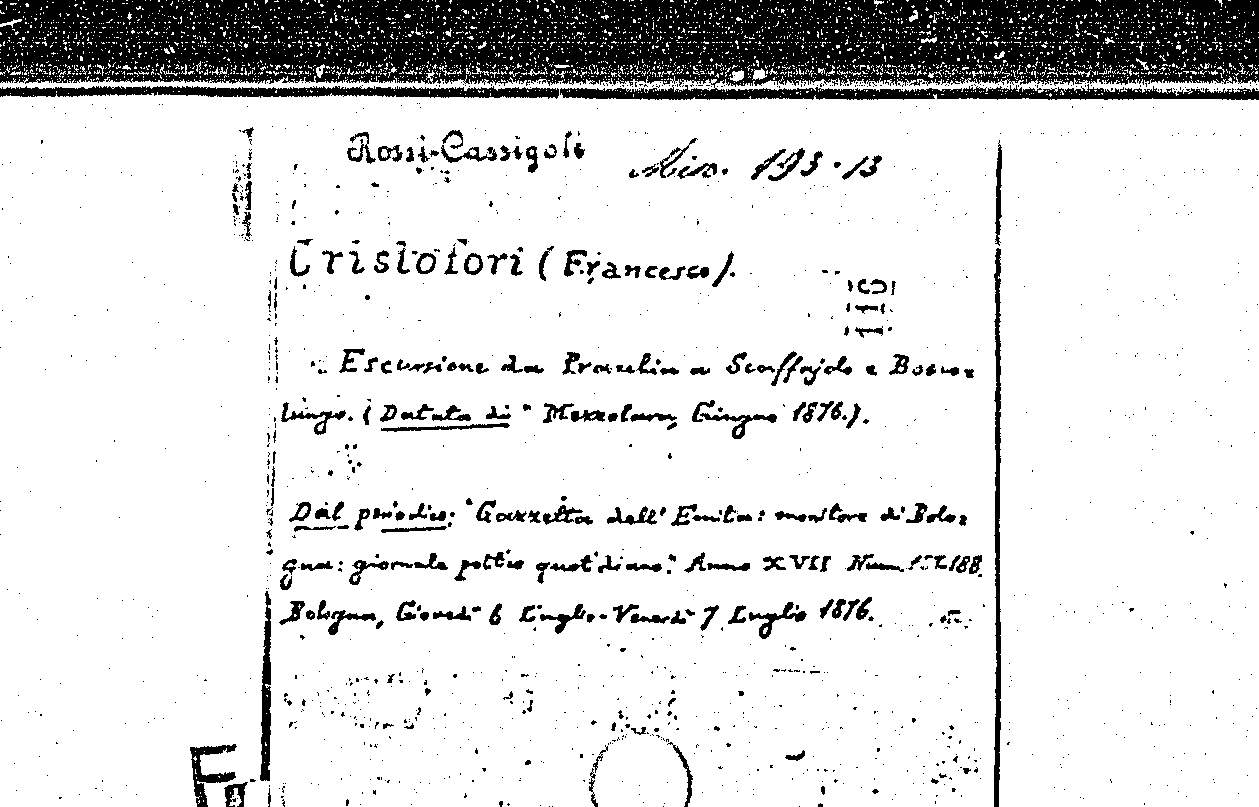 Rossi-Cassigoli Mis. 193-13
Cristofori (Francesco).
Escursione da Pracchia a Scaffajolo e Bosco-
lungo. (Datata di " Mezzolara, Giugno 1876.).
Dal periodico: "Gazzetta dell' Emilia: monitore di Bolo-
gna: giornale pottio quotidiano." Anno XVII Num. 188.
Bologna, Giovedì 6 Luglio-Venerdì 7 Luglio 1876.